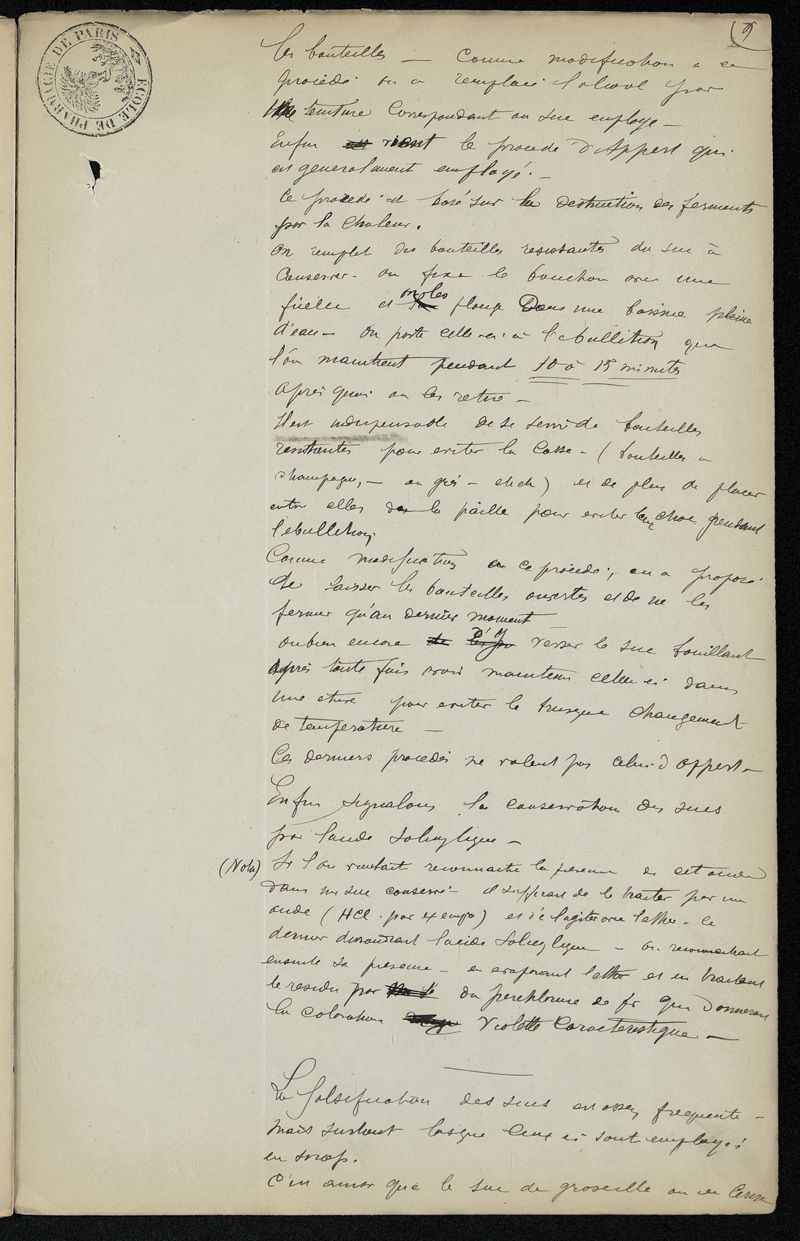 ECOLE DE PHARMACIE DE PARIS
9
les bouteilles — Comme modification à ce
procédé on a remplacé l'alcool par
teinture Correspondant au suc employé —
Enfin vient le procédé d'Appert qui
est generalement employé. —
Ce procédé est basé sur la destruction des ferments
par la chaleur.
On remplit des bouteilles resistantes du suc à
Conserver - on fixe le bouchon avec une
ficelle et on les plonge Dans une bassine pleine
d'eau — On porte celle-ci à l'ebullition que
l'on maintient pendant 10 à 15 minutes
Après quoi on les retire —
Il est indispensable de se servir de bouteilles
resistantes pour eviter la Casse — (bouteilles à
champagne, — en grès — etc) et de plus de placer
entre elles de la paille pour eviter leur choc pendant
l'ebullition.
Comme modification à ce procédé, on a proposé
de laisser les bouteilles ouvertes et de ne les
fermer qu'au dernier moment
ou bien encore D'y verser le suc bouillant
Après toute fois avoir maintenu celles ci dans
une etuve pour eviter le brusque changement
de temperature —
Ces derniers procédés ne valent pas celui d'Appert —
Enfin signalons la conservation des sucs
par l'acide Salicylique —
(Nota) Si l'on voulait reconnaitre la présence de cet acide
dans un suc conservé - il suffirait de le traiter par un
acide (HCl par exemple) et de l'agiter avec l'ether - ce
dernier dissoudrait l'acide Salicylique — On reconnaitrait
ensuite sa présence — en evaporant l'ether et en traitant
le residu par du perchlorure de fer qui Donnerait
la Coloration Violette Caracteristique —
La falsification des sucs est assez frequente —
mais surtout lorsque ceux ci sont employés
en sirop.
C'est ainsi que le suc de groseille ou de Cerise